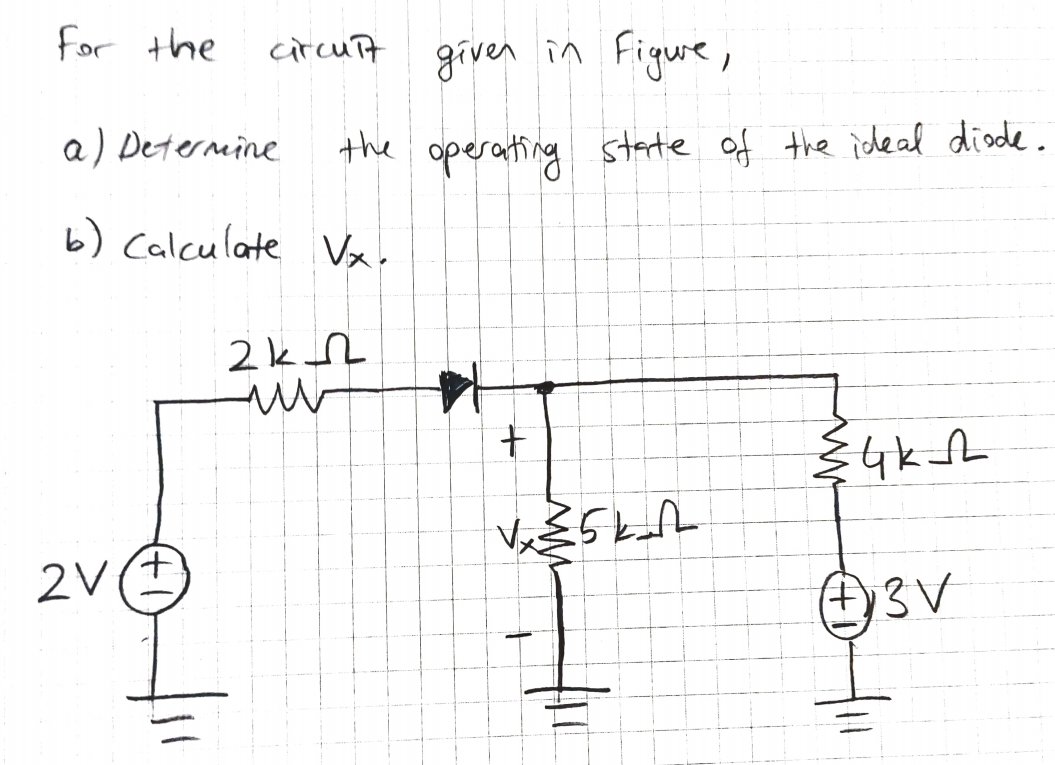 For the circuit given in Figure,
a) Determine the operating state of the ideal diode.
b) Calculate Vx.
2kΩ
+
4kΩ
Vx 5kΩ
2V + −
+ − 3V
−